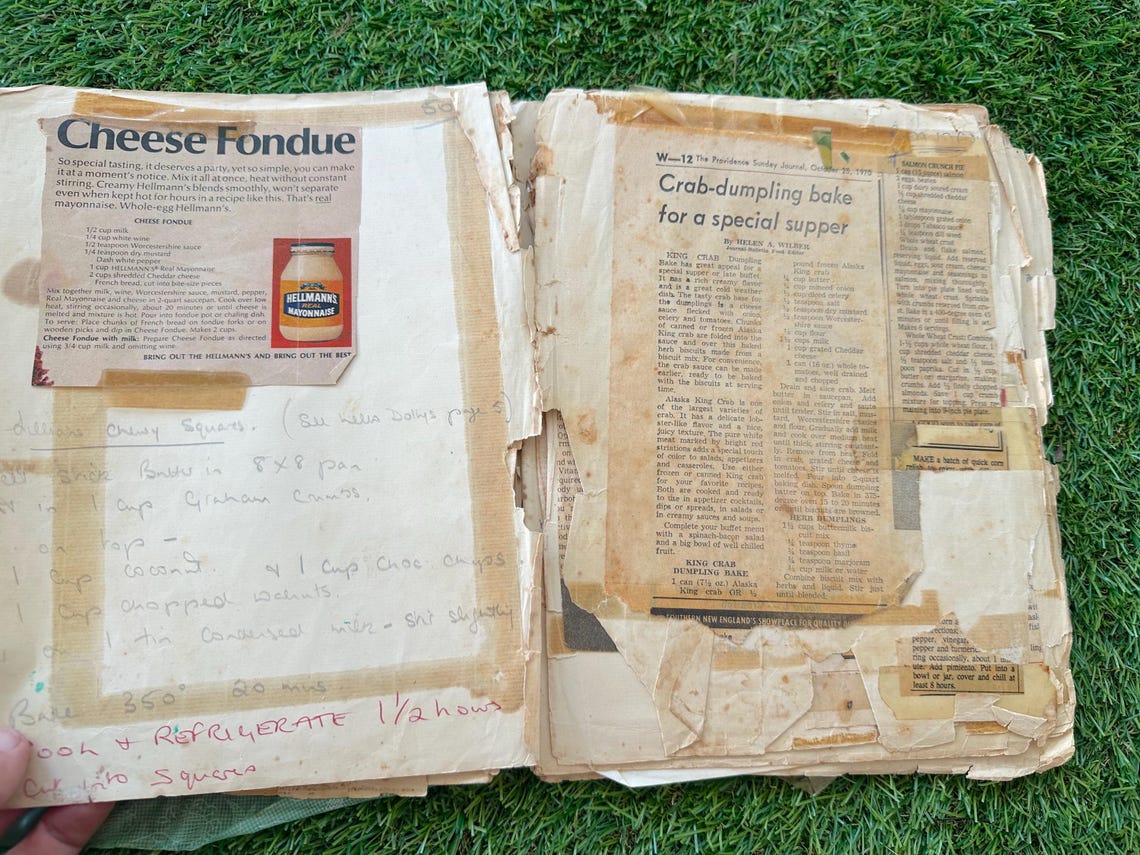 50
Cheese Fondue
So special tasting, it deserves a party, yet so simple, you can make
it at a moment's notice. Mix it all at once, heat without constant
stirring. Creamy Hellmann's blends smoothly, won't separate
even when kept hot for hours in a recipe like this. That's real
mayonnaise. Whole-egg Hellmann's.
CHEESE FONDUE
1/2 cup milk
1/4 cup white wine
1/2 teaspoon Worcestershire sauce
1/4 teaspoon dry mustard
Dash white pepper
1 cup HELLMANN'S Real Mayonnaise
2 cups shredded Cheddar cheese
French bread, cut into bite-size pieces
Mix together milk, wine, Worcestershire sauce, mustard, pepper,
Real Mayonnaise and cheese in 2-quart saucepan. Cook over low
heat, stirring occasionally, about 20 minutes or until cheese is
melted and mixture is hot. Pour into fondue pot or chafing dish.
To serve: Place chunks of French bread on fondue forks or on
wooden picks and dip in Cheese Fondue. Makes 2 cups.
Cheese Fondue with milk: Prepare Cheese Fondue as directed
using 3/4 cup milk and omitting wine.
HELLMANN'S
REAL
MAYONNAISE
BRING OUT THE HELLMANN'S AND BRING OUT THE BEST
Chewy Squares. (See Hello Dollys page 5)
stick Butter in 8x8 pan
in 1 cup Graham Crumbs.
on top -
1 cup coconut. & 1 cup choc chips
1 cup chopped walnuts.
1 tin condensed milk - stir slightly
Bake 350° 20 mins
& REFRIGERATE 1 1/2 hours
Cut into Squares
W—12 The Providence Sunday Journal, October 25, 1970
Crab-dumpling bake
for a special supper
By HELEN A. WILBER
Journal-Bulletin Food Editor
KING CRAB Dumpling
Bake has great appeal for a
special supper or late buffet.
It has a rich creamy flavor
and is a great cold weather
dish. The tasty crab base for
the dumplings is a cheese
sauce flecked with onion,
celery and tomatoes. Chunks
of canned or frozen Alaska
King crab are folded into the
sauce and over this baked
herb biscuits made from a
biscuit mix. For convenience,
the crab sauce can be made
earlier, ready to be baked
with the biscuits at serving
time.
Alaska King Crab is one
of the largest varieties of
crab. It has a delicate lob-
ster-like flavor and a nice,
juicy texture. The pure white
meat marked by bright red
striations adds a special touch
of color to salads, appetizers
and casseroles. Use either
frozen or canned King crab
for your favorite recipes.
Both are cooked and ready
to use in appetizer cocktails,
dips or spreads, in salads or
in creamy sauces and soups.
Complete your buffet menu
with a spinach-bacon salad
and a big bowl of well chilled
fruit.
KING CRAB
DUMPLING BAKE
1 can (7½ oz.) Alaska
King crab OR ½
pound frozen Alaska
King crab
cup butter
cup minced onion
cup diced celery
teaspoon salt
teaspoon dry mustard
teaspoon Worcester-
shire sauce
cup flour
cups milk
1 cup grated Cheddar
cheese
1 can (16 oz.) whole to-
matoes, well drained
and chopped
Drain and slice crab. Melt
butter in saucepan. Add
onion and celery and saute
until tender. Stir in salt, mus-
tard, Worcestershire sauce
and flour. Gradually add milk
and cook over medium heat
until thick, stirring constant-
ly. Remove from heat. Fold
in crab, grated cheese and
tomatoes. Stir until cheese is
melted. Pour into 2-quart
baking dish. Spoon dumpling
batter on top. Bake in 375-
degree oven 15 to 20 minutes
or until biscuits are browned.
HERB DUMPLINGS
1½ cups buttermilk bis-
cuit mix
teaspoon thyme
teaspoon basil
teaspoon marjoram
cup milk or water
Combine biscuit mix with
herbs and liquid. Stir just
until blended.
SOUTHERN NEW ENGLAND'S SHOWPLACE FOR QUALITY
SALMON CRUNCH PIE
1 can (15 ounces) salmon
3 eggs, beaten
1 cup dairy soured cream
cup shredded cheddar
cheese
cup mayonnaise
1 tablespoon grated onion
3 drops Tabasco sauce
teaspoon dill weed
Whole wheat crust
Drain and flake salmon,
reserving liquid. Add reserved
liquid, eggs, sour cream, cheese,
mayonnaise and seasonings
Makes 6 servings.
MAKE a batch of quick corn
pepper, vinegar,
pepper and turmeric
ring occasionally, about 1
ute. Add pimiento. Put into a
bowl or jar, cover and chill at
least 8 hours.